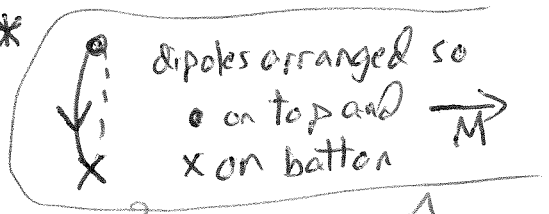 * dipoles arranged so
• on top and → M
x on botton